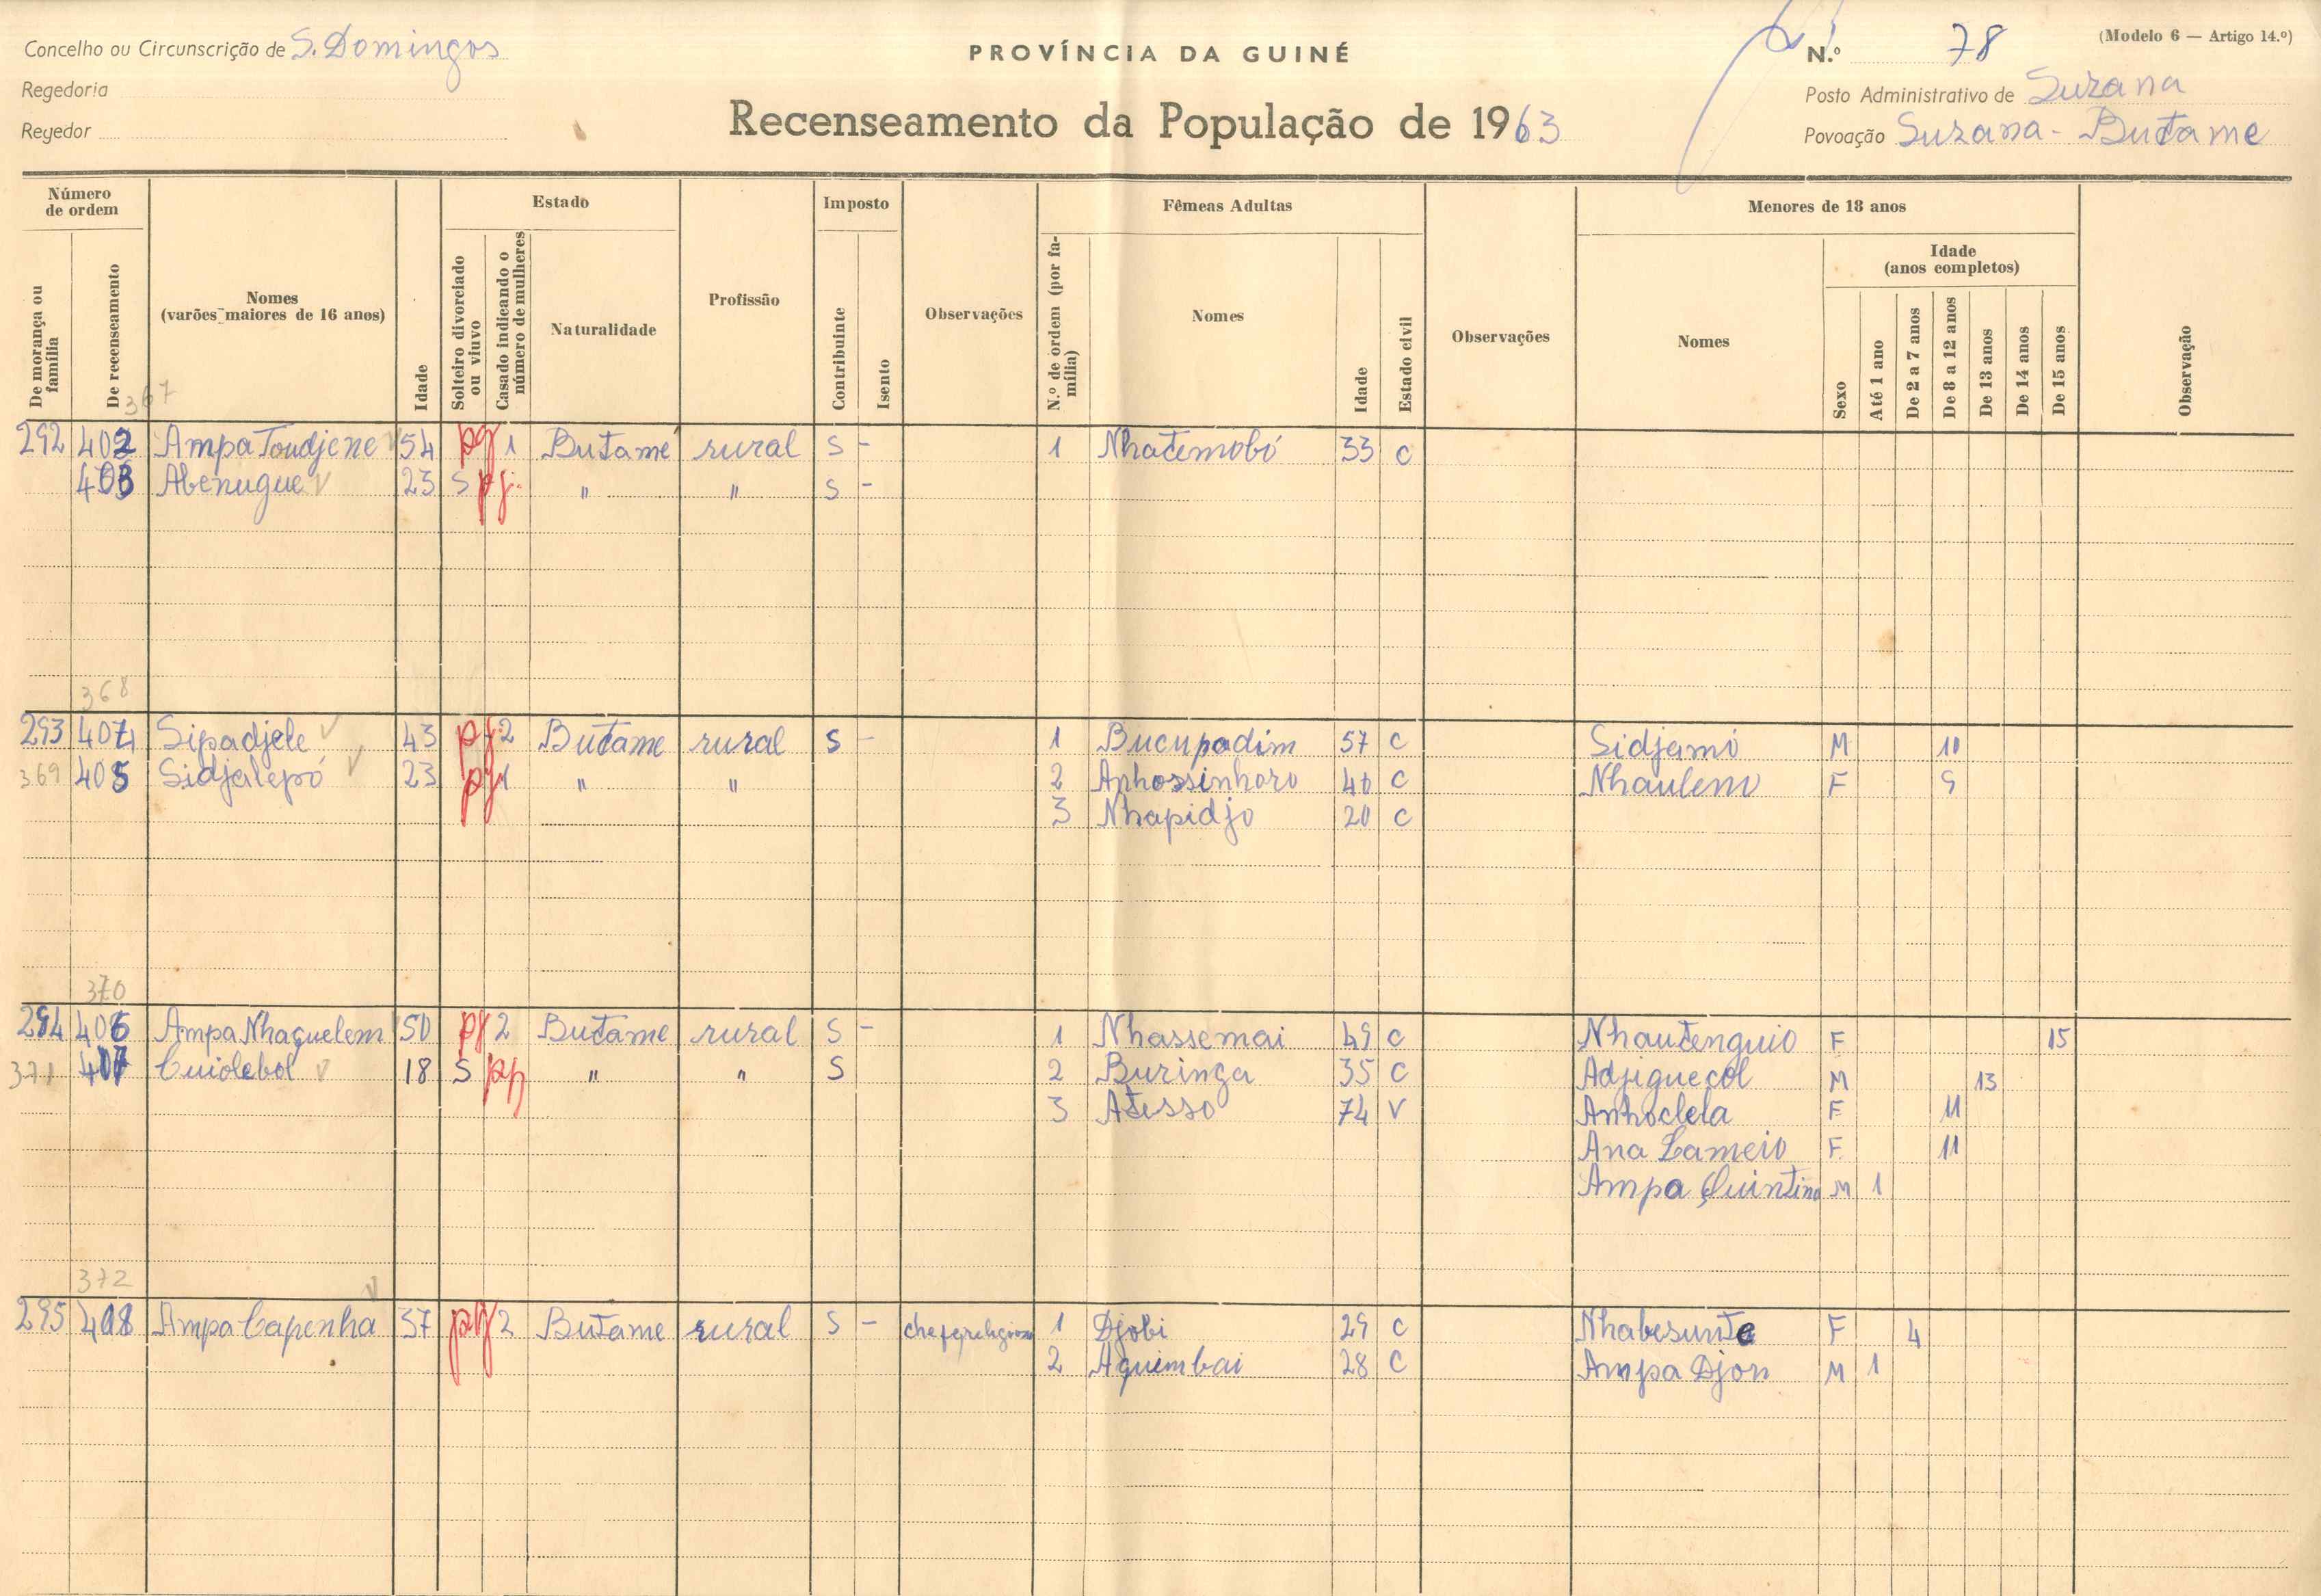 Concelho ou Circunscrição de S. Domingos
Regedoria
Regedor
PROVÍNCIA DA GUINÉ
Recenseamento da População de 1963
N.º 78
(Modelo 6 — Artigo 14.º)
Posto Administrativo de Suzana
Povoação Suzana - Butame
Número de ordem
De morança ou família
De recenseamento
Nomes (varões maiores de 16 anos)
Idade
Estado
Solteiro divorciado ou viuvo
Casado indicando o número de mulheres
Naturalidade
Profissão
Imposto
Contribuinte
Isento
Observações
Fêmeas Adultas
N.º de ordem (por família)
Nomes
Idade
Estado civil
Observações
Menores de 18 anos
Nomes
Sexo
Idade (anos completos)
Até 1 ano
De 2 a 7 anos
De 8 a 12 anos
De 13 anos
De 14 anos
De 15 anos
Observação
367
292 402 Ampa Toudjene 54 pg 1 Butame rural S - 1 Nhatemobó 33 C
403 Abenugue 23 S pg " " S -
368
293 404 Sipadjele 43 pg 2 Butame rural S - 1 Bucupadim 57 C Sidjamó M 10
369 405 Sidjalepó 23 pg 1 " " 2 Anhossinhoro 40 C Nhaulem F 9
3 Nhapidjo 20 C
370
294 406 Ampa Nhaquelem 50 pg 2 Butame rural S - 1 Nhassemai 49 C Nhautenguio F 15
371 407 Cuiolebol 18 S pg " " S 2 Buringa 35 C Adjiguecol M 13
3 Atesso 74 V Anhoclela F 11
Ana Lameio F 11
Ampa Quintino M 1
372
295 408 Ampa Capenha 37 pg 2 Butame rural S - chefe religioso 1 Djobi 29 C Nhabesunte F 4
2 Aquimbai 28 C Ampa Djon M 1